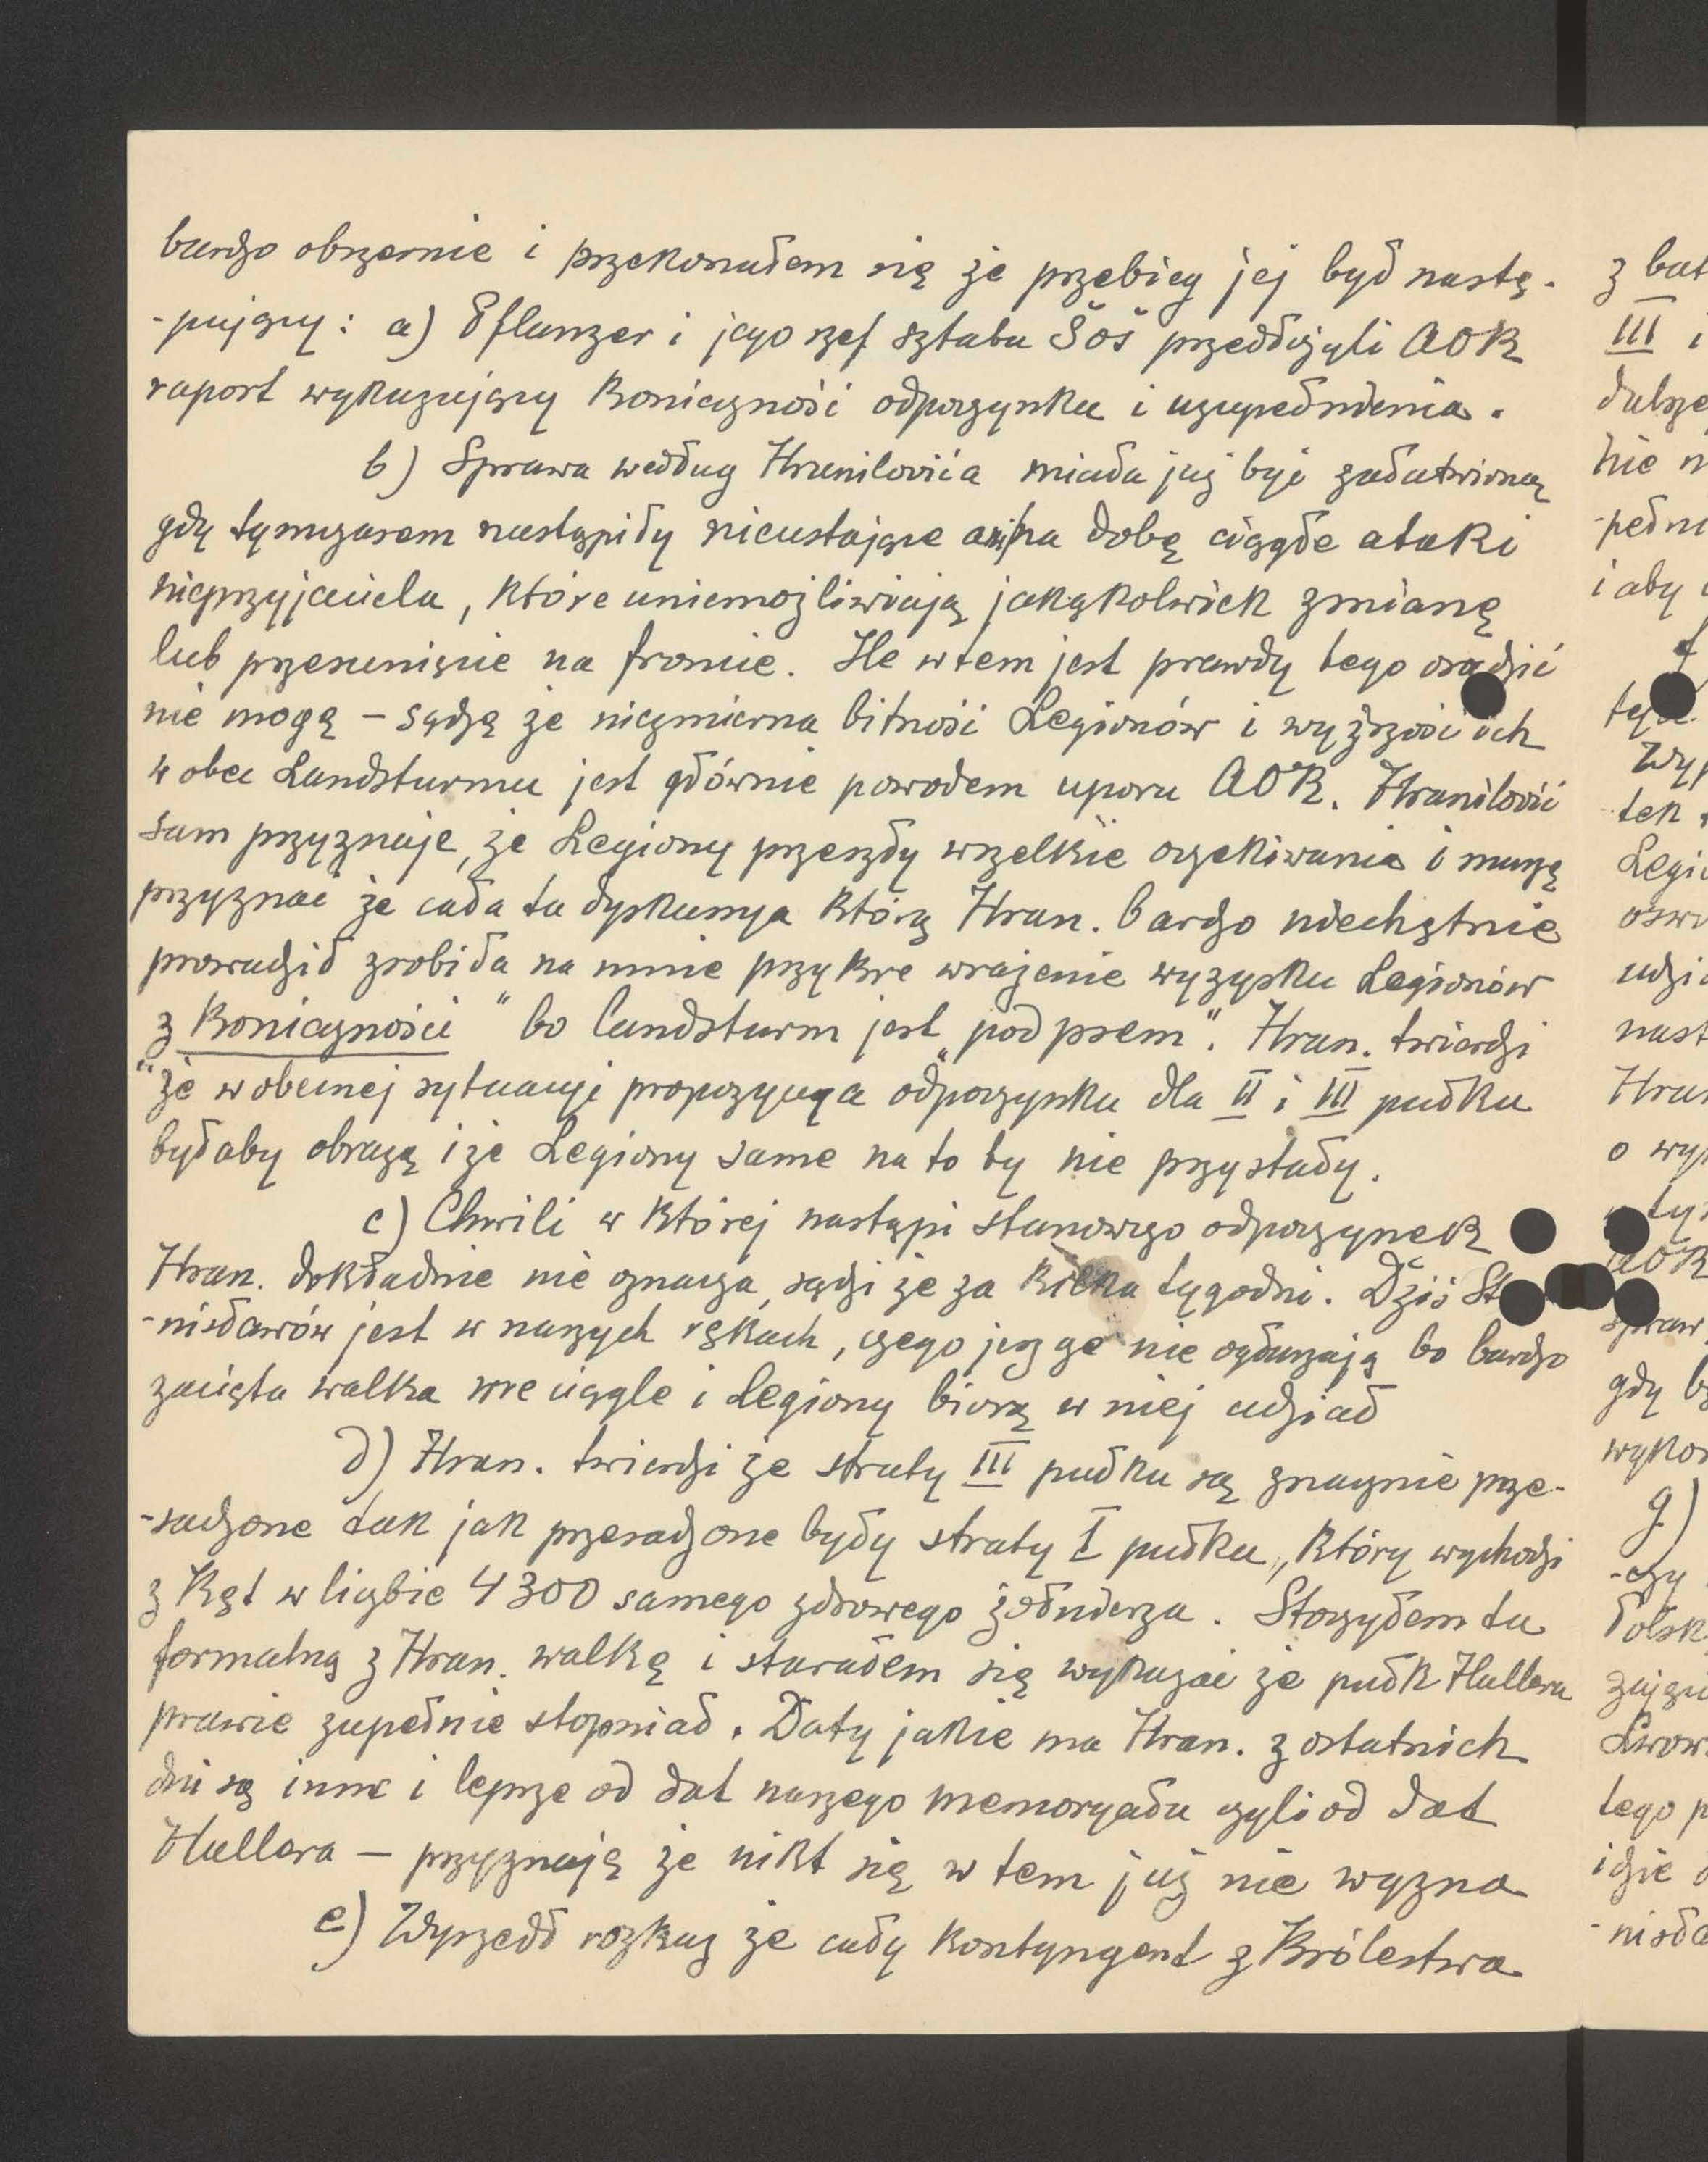 bardzo obszernie i przekonałem się że przebieg jej był nastę-
-pujący: a) Pflanzer i jego szef sztabu Šoš przedłożyli AOK
raport wykazujący Koniczność odpoczynku i uzupełnienia.
b) Sprawa według Hranilovića miała już być załatwioną
gdy tymczasem nastąpiły nieustające ani na dobę ciągłe ataki
nieprzyjaciela, które uniemożliwiają jakąkolwiek zmianę
lub przesunięcie na froncie. Ile w tem jest prawdy tego osądzić
nie mogę – sądzę że niezmierna bitność Legionów i wyższość ich
wobec Landsturmu jest głównie powodem uporu AOK. Hranilović
sam przyznaje, że Legiony przeszły wszelkie oczekiwania i muszę
przyznać że cała ta dyskusya którą Hran. bardzo niechętnie
prowadził zrobiła na mnie przykre wrażenie wyzysku Legionów
z Koniczności "bo landsturm jest „pod psem". Hran. twierdzi
"że w obecnej sytuacyi propozycya odpoczynku dla II i III pułku
byłaby obrazą i że Legiony same na to by nie przystały.
c) Chwili w której nastąpi stanowczo odpoczynek
Hran. dokładnie nie oznacza, sądzi że za kilka tygodni. Dziś St
-nisławów jest w naszych rękach, czego jeszcze nie ogłaszają bo bardzo
zacięta walka wre ciągle i Legiony biorą w niej udział
d) Hran. twierdzi że straty III pułku są znacznie prze-
-sadzone tak jak przesadzone były straty I pułku, który wychodzi
z Kęt w liczbie 4300 samego zdrowego żołnierza. Stoczyłem tu
formalną z Hran. walkę i starałem się wykazać że pułk Hallera
prawie zupełnie stopniał. Daty jakie ma Hran. z ostatnich
dni są inne i lepsze od dat naszego memoryału czyli od dat
Hallera – przyznają że nikt się w tem już nie wyzna
e) Wyszedł rozkaz że cały kontyngent z Królestwa
z bat
III i
dalsze
nie n
-pełni
i aby
f
Wyp
tek
Legi
oswo
udzi
nast
Hran
o wy
AOK
spraw
gdy b
wykon
g)
-czy
Polsk
zajęci
Lwow
tego p
idzie
-nisła